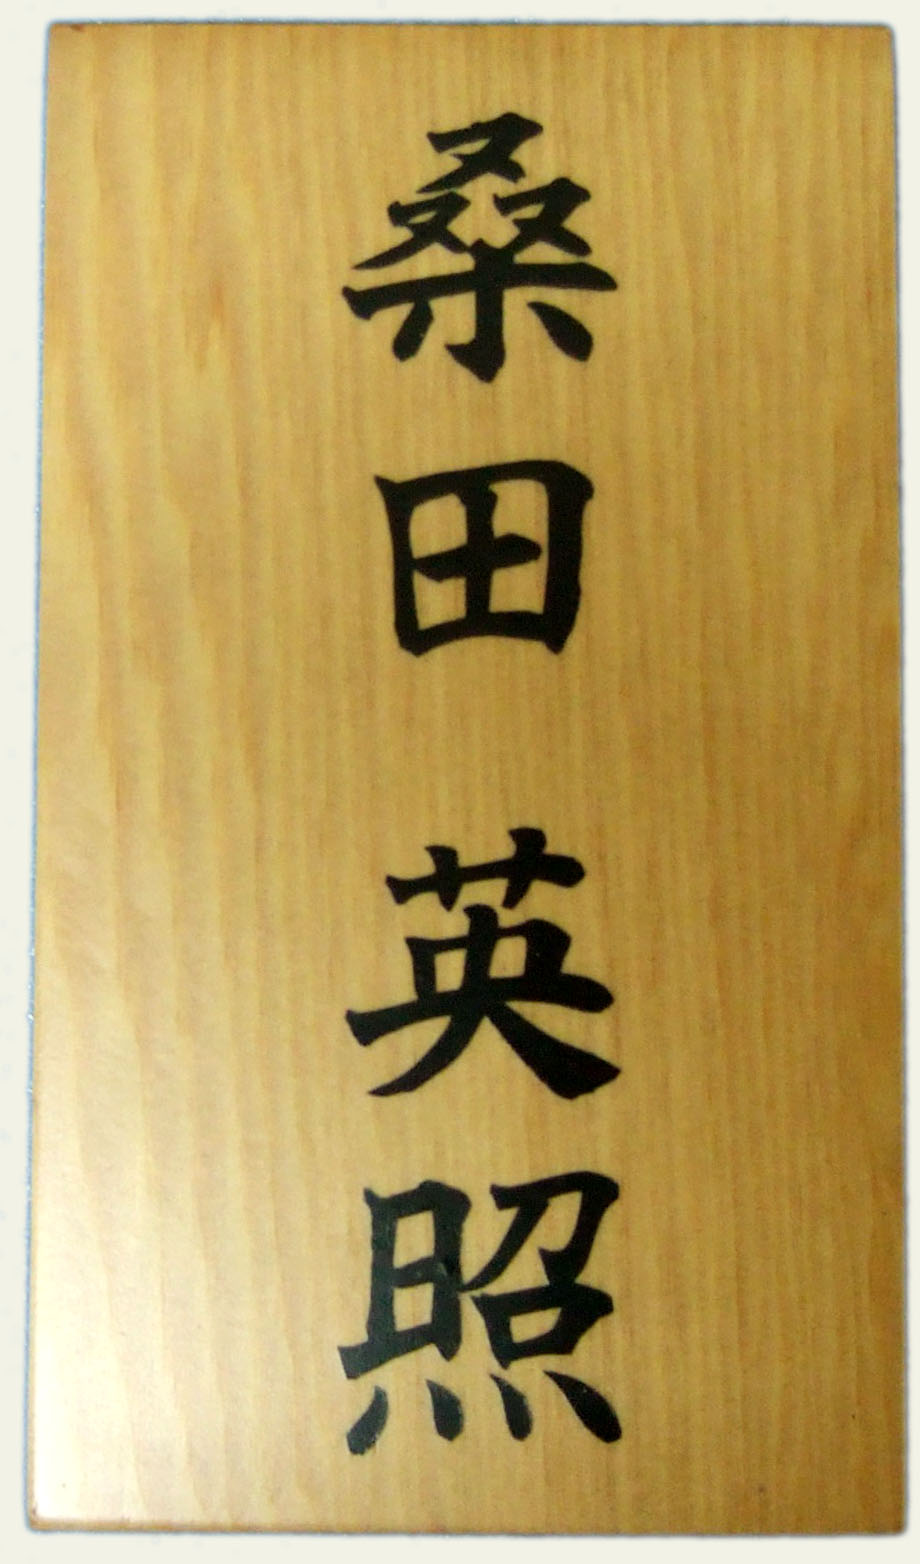 桑田英照